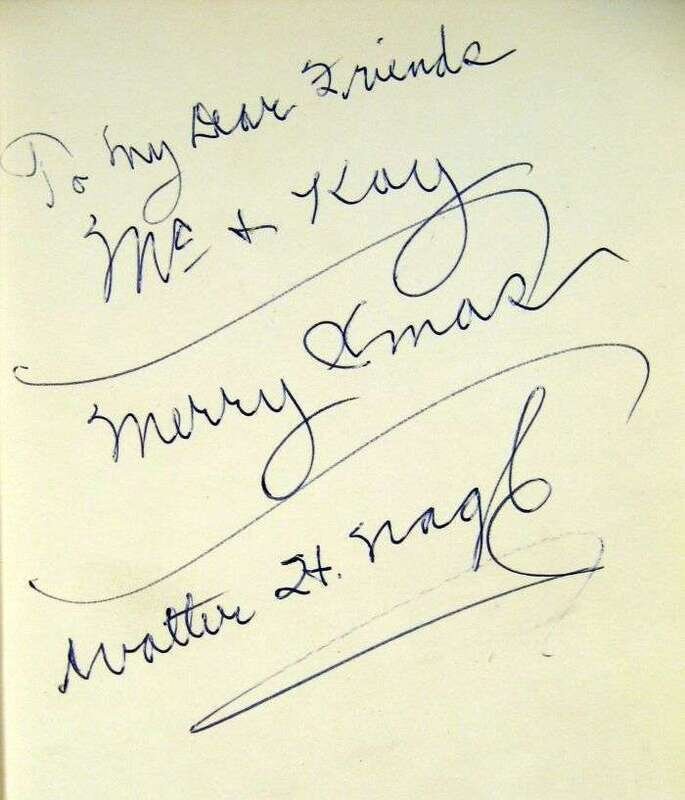 To My Dear Friends
Mc + Kay
Merry Xmas
Walter H. Nagl